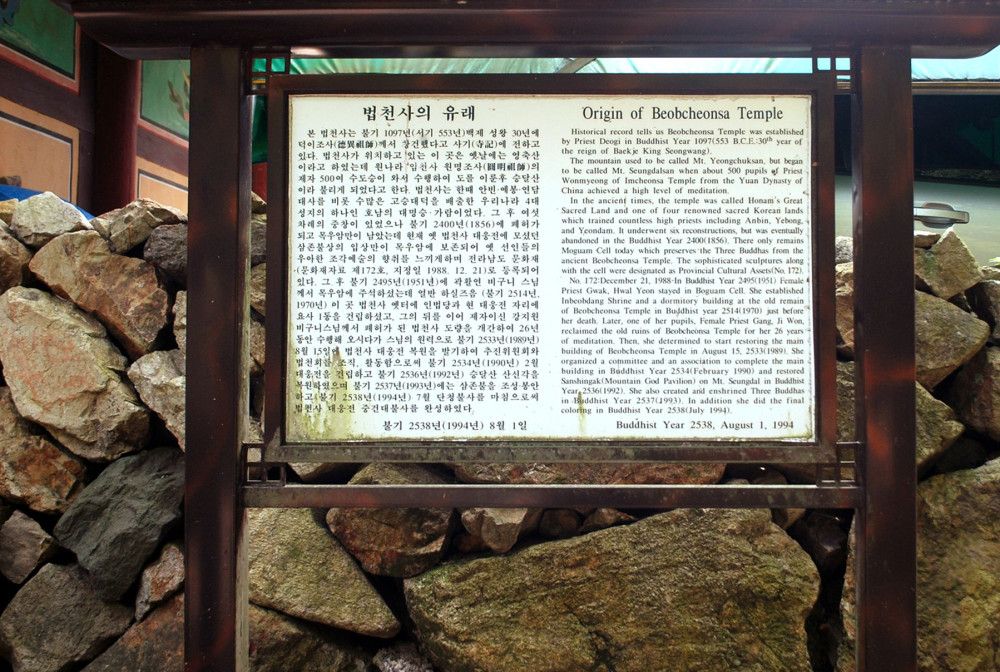 법천사의 유래
본 법천사는 불기 1097년(서기 553년)백제 성왕 30년에
덕이조사(德異祖師)께서 창건했다고 사기(寺記)에 전하고
있다. 법천사가 위치하고 있는 이 곳은 옛날에는 영축산
이라고 하였는데 원나라 임천사 원명조사(圓明祖師)의
제자 500여 수도승이 와서 수행하여 도를 이룬후 승달산
이라 불리게 되었다고 한다. 법천사는 한때 안빈·예봉·연담
대사를 비롯 수많은 고승대덕을 배출한 우리나라 4대
성지의 하나인 호남의 대명승·가람이었다. 그 후 여섯
차례의 중창이 있었으나 불기 2400년(1856)에 폐허가
되고 목우암만이 남았는데 현재 옛 법천사 대웅전에 모셨던
삼존불상의 입상만이 목우암에 보존되어 옛 선인들의
우아한 조각예술의 향취를 느끼게하며 전라남도 문화재
(문화재자료 제172호, 지정일 1988. 12. 21)로 등록되어
있다. 그 후 불기 2495년(1951년)에 곽활연 비구니 스님
께서 목우암에 주석하셨는데 열반 하실즈음 (불기 2514년,
1970년) 이 곳 법천사 옛터에 인법당과 현 대웅전 자리에
요사 1동을 건립하셨고, 그의 뒤를 이어 제자이신 강지원
비구니스님께서 폐허가 된 법천사 도량을 개간하여 26년
동안 수행해 오시다가 스님의 원력으로 불기 2533년(1989년)
8월 15일에 법천사 대웅전 복원을 발기하여 추진위원회와
법천회를 조직, 활동함으로써 불기 2534년(1990년) 2월
대웅전을 건립하고 불기 2536년(1992년) 승달산 산신각을
복원하였으며 불기 2537년(1993년)에는 삼존불을 조성봉안
하고 불기 2538년(1994년) 7월 단청불사를 마침으로써
법천사 대웅전 중건대불사를 완성하였다.
불기 2538년(1994년) 8월 1일
Origin of Beobcheonsa Temple
Historical record tells us Beobcheonsa Temple was established
by Priest Deogi in Buddhist Year 1097(553 B.C.E.:30th year of
the reign of Baekje King Seongwang).
The mountain used to be called Mt. Yeongchuksan, but began
to be called Mt. Seungdalsan when about 500 pupils of Priest
Wonmyeong of Imcheonsa Temple from the Yuan Dynasty of
China achieved a high level of meditation.
In the ancient times, the temple was called Honam's Great
Sacred Land and one of four renowned sacred Korean lands
which trained countless high priests including Anbin, Yebong,
and Yeondam. It underwent six reconstructions, but was eventually
abandoned in the Buddhist Year 2400(1856). There only remains
Moguam Cell today which preserves the Three Buddhas from the
ancient Beobcheonsa Temple. The sophisticated sculptures along
with the cell were designated as Provincial Cultural Assets(No. 172).
No. 172:December 21, 1988·In Buddhist Year 2495(1951) Female
Priest Gwak, Hwal Yeon stayed in Boguam Cell. She established
Inbeobdang Shrine and a dormitory building at the old remain
of Beobcheonsa Temple in Buddhist year 2514(1970) just before
her death. Later, one of her pupils, Female Priest Gang, Ji Won,
reclaimed the old ruins of Beobcheonsa Temple for her 26 years
of meditation. Then, she determined to start restoring the main
building of Beobcheonsa Temple in August 15, 2533(1989). She
organized a committee and an association to complete the main
building in Buddhist Year 2534(February 1990) and restored
Sanshingak(Mountain God Pavilion) on Mt. Seungdal in Buddhist
Year 2536(1992). She also created and enshrined Three Buddhas
in Buddhist Year 2537(1993). In addition she did the final
coloring in Buddhist Year 2538(July 1994).
Buddhist Year 2538, August 1, 1994